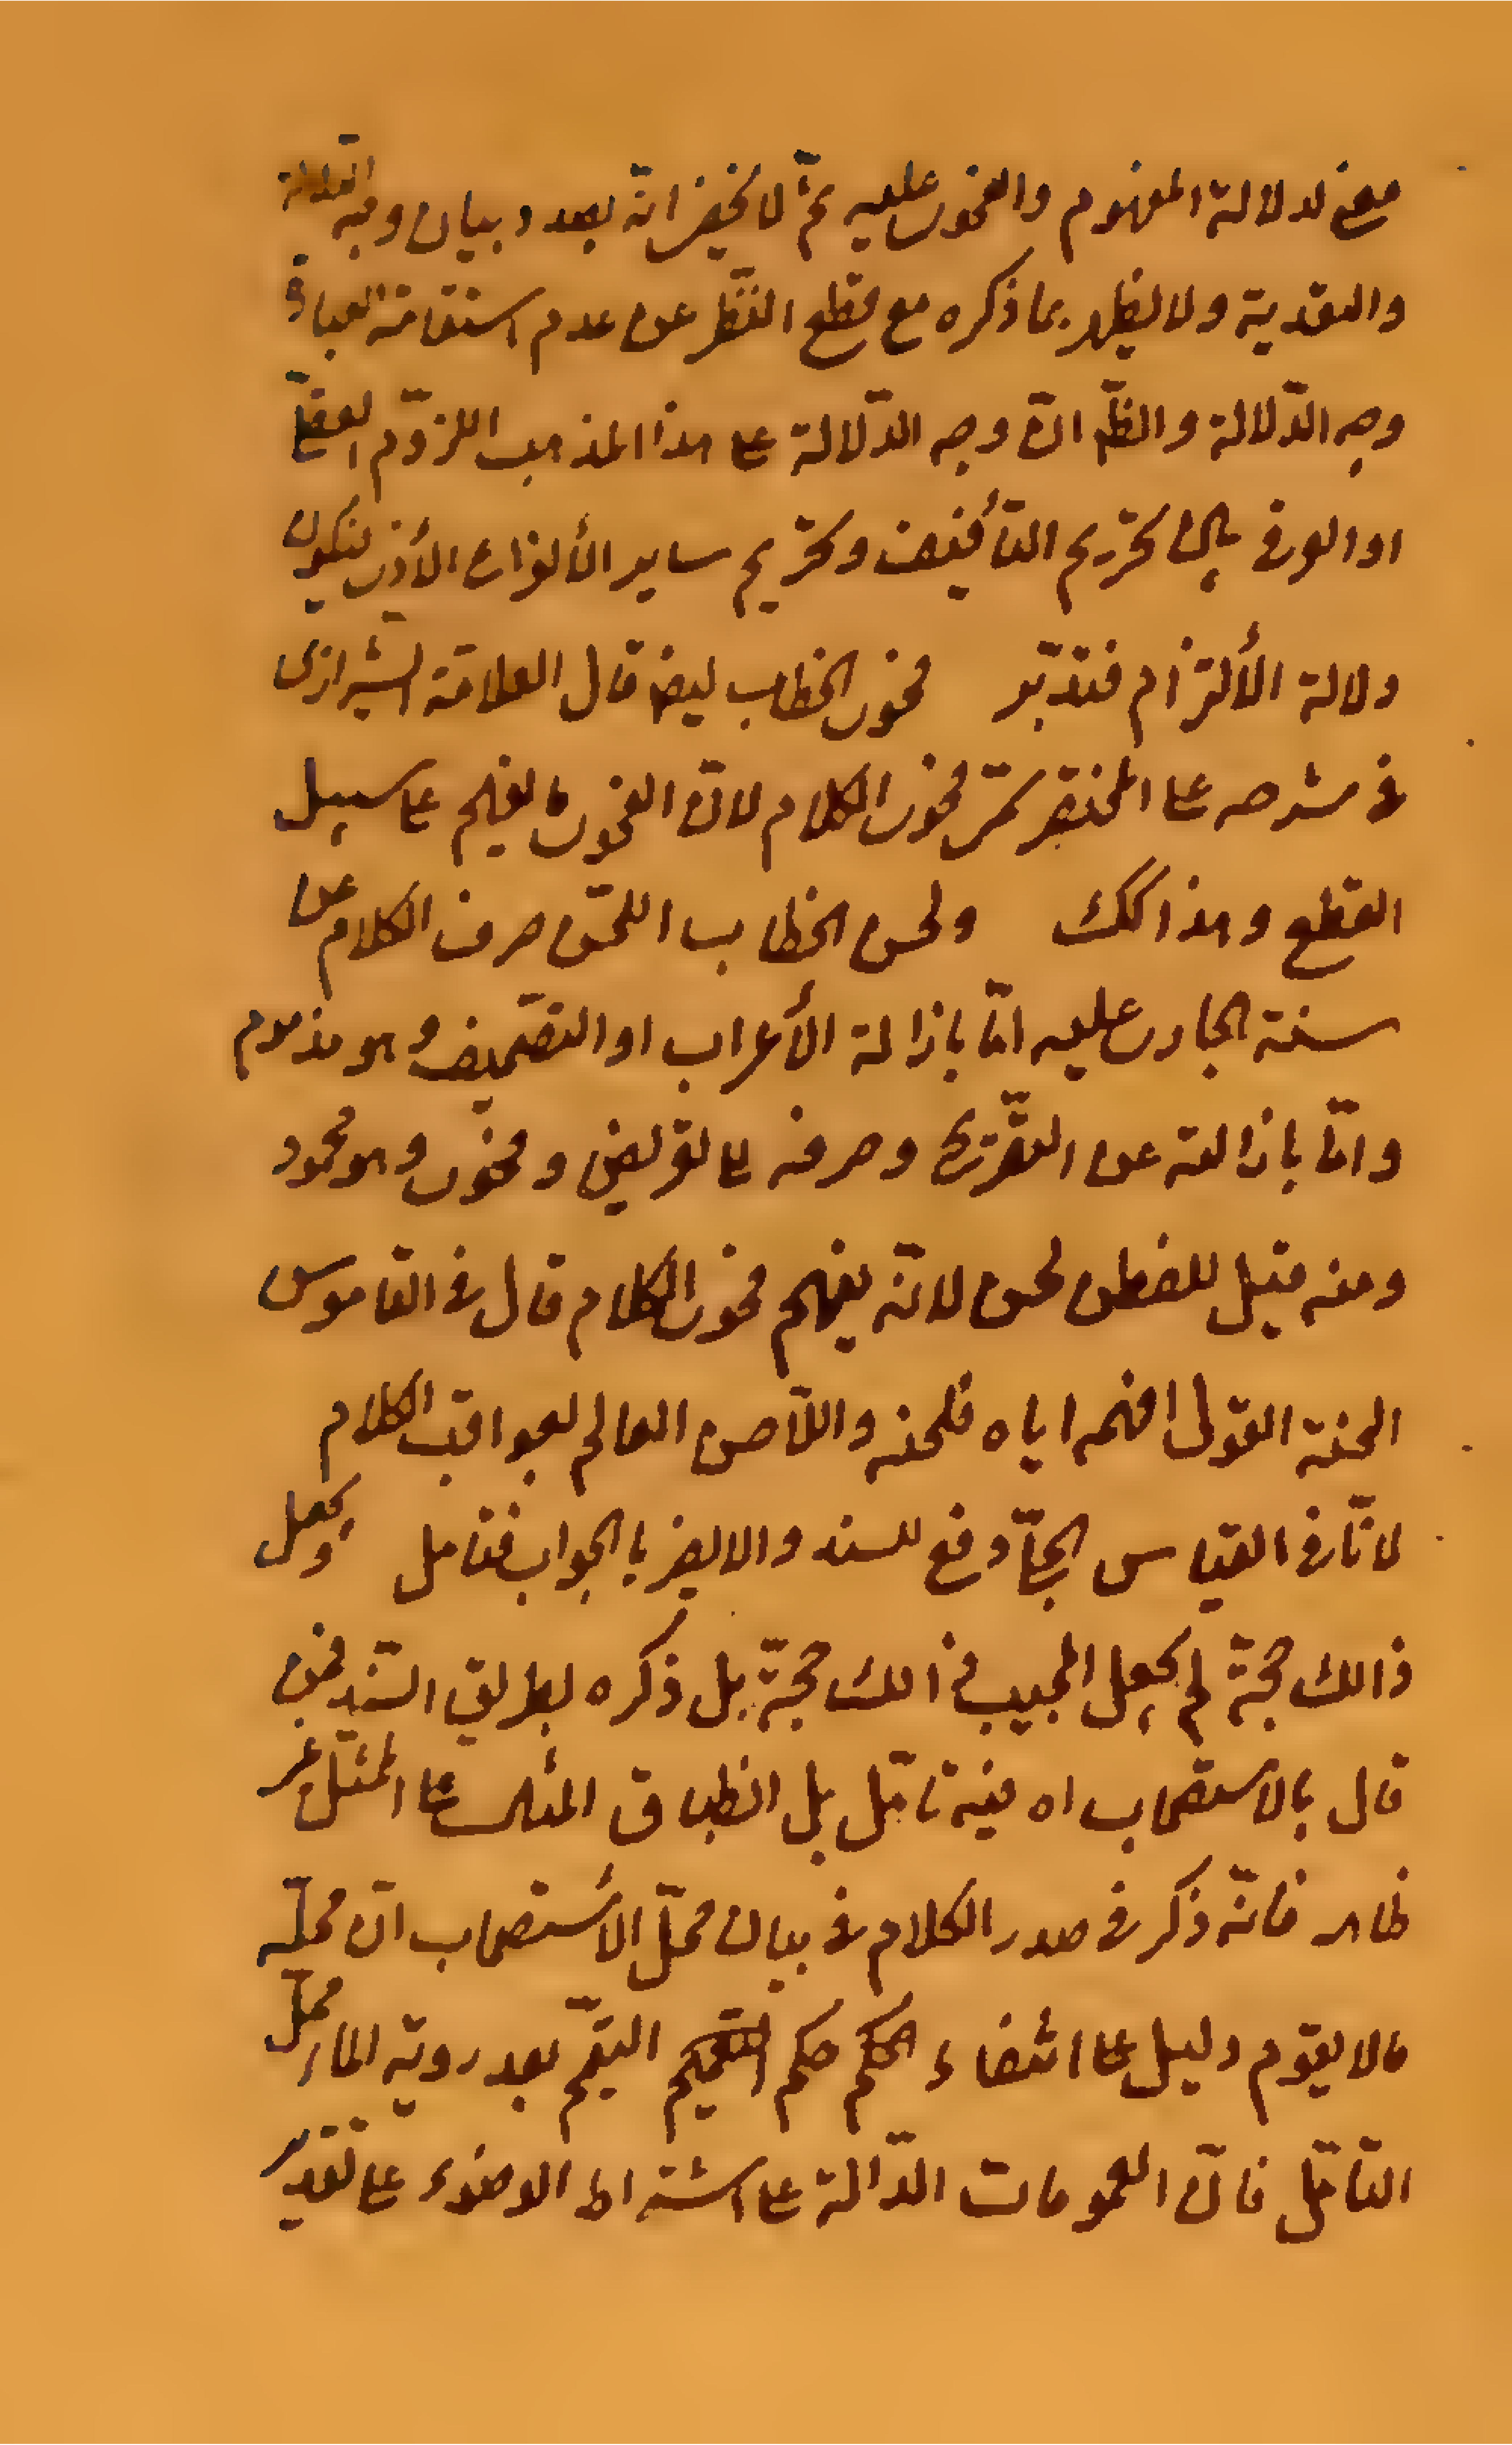 معنى لدلالة المفهوم والفحوى عليه ثمّ لا يخفى انّه بصدد بيان وجه الدلالة
والتعدية ولا يظهر بما ذكره مع قطع النّظر عن عدم استقامة العبارة
وجه الدّلالة والظّ انّ وجه الدّلالة على هذا المذهب اللزوم العقلى
او العرفى بين تحريم التأفيف وتحريم ساير الأنواع الأذى فيكون
دلالة الألتزام فتدبّر فحوى الخطاب ايضا قال العلامة الشيرازى
فى شرحه على المختصر سمّى فحوى الكلام لانّ الفحوى ما يفهم على سبيل
القطع وهذا كك ولحن الخطاب اللحن صرف الكلام عن
سننه الجارى عليه امّا بازالة الأعراب او التصحيف وهو مذموم
وامّا بازالته عن التصريح وصرفه الى تعريض وفحوى وهو محمود
ومنه قيل للفطن لحن لانّه يفهم فحوى الكلام قال فى القاموس
الحنه القول افهمه اياه فلحنه واللاحن العالم بعواقب الكلام
لا نّا فى القياس الجلىّ دفع للسند والا يضر بالجواب فتامل وجعل
ذالك حجّة لم يجعل المجيب ذالك حجّة بل ذكره بطريق السّند فمن
قال بالاستصحاب اه فيه تامّل بل انطباق المثال على الممثّل غير
ظاهر فانّه ذكر فى صدر الكلام فى بيان محلّ الأستصحاب انّ محلّه
ما لا يقوم دليل على انتفاء الحكم حكم التيمّم بعد روية الماء محلّ
التامّل فانّ العمومات الدّالة على اشتراط الوضوء على تقدير